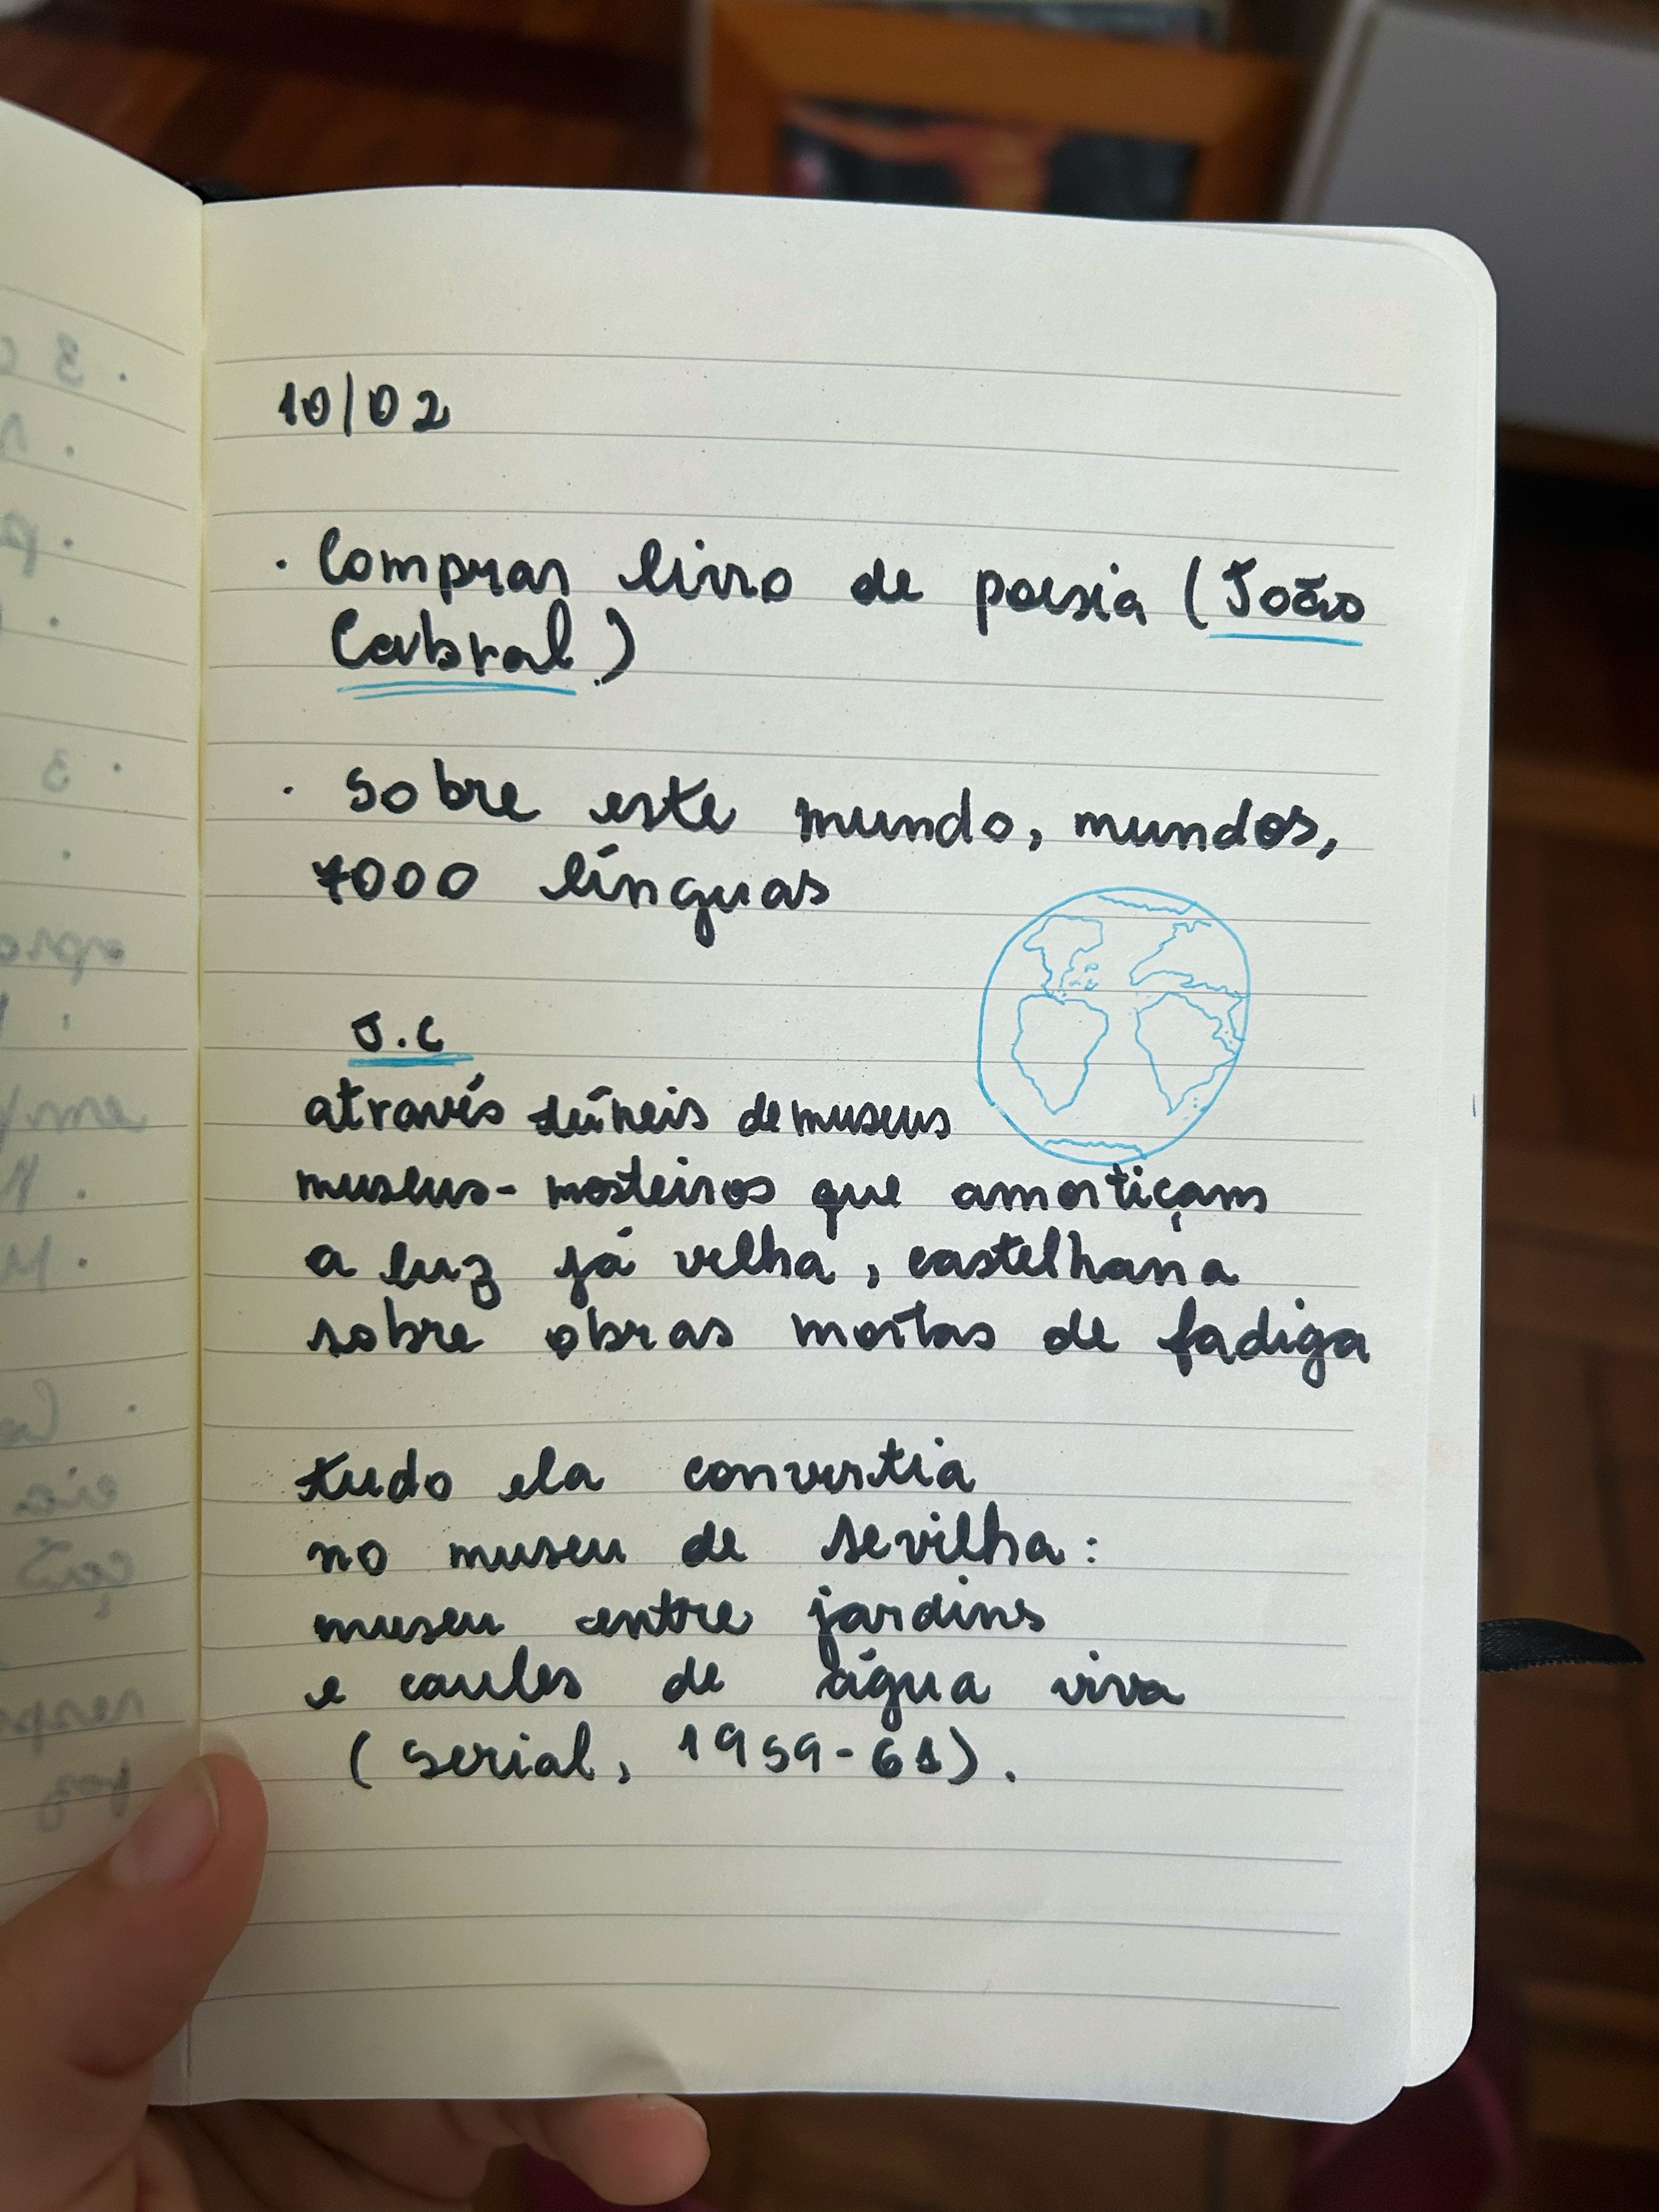 10/02
· Comprar livro de poesia (João
Cabral.)
· Sobre este mundo, mundos,
7000 línguas
J.C
através túneis de museus
museus-mosteiros que amortiçam
a luz já velha, castelhana
sobre obras mortas de fadiga
tudo ela convertia
no museu de sevilha:
museu entre jardins
e caules de água viva
(serial, 1959-61).